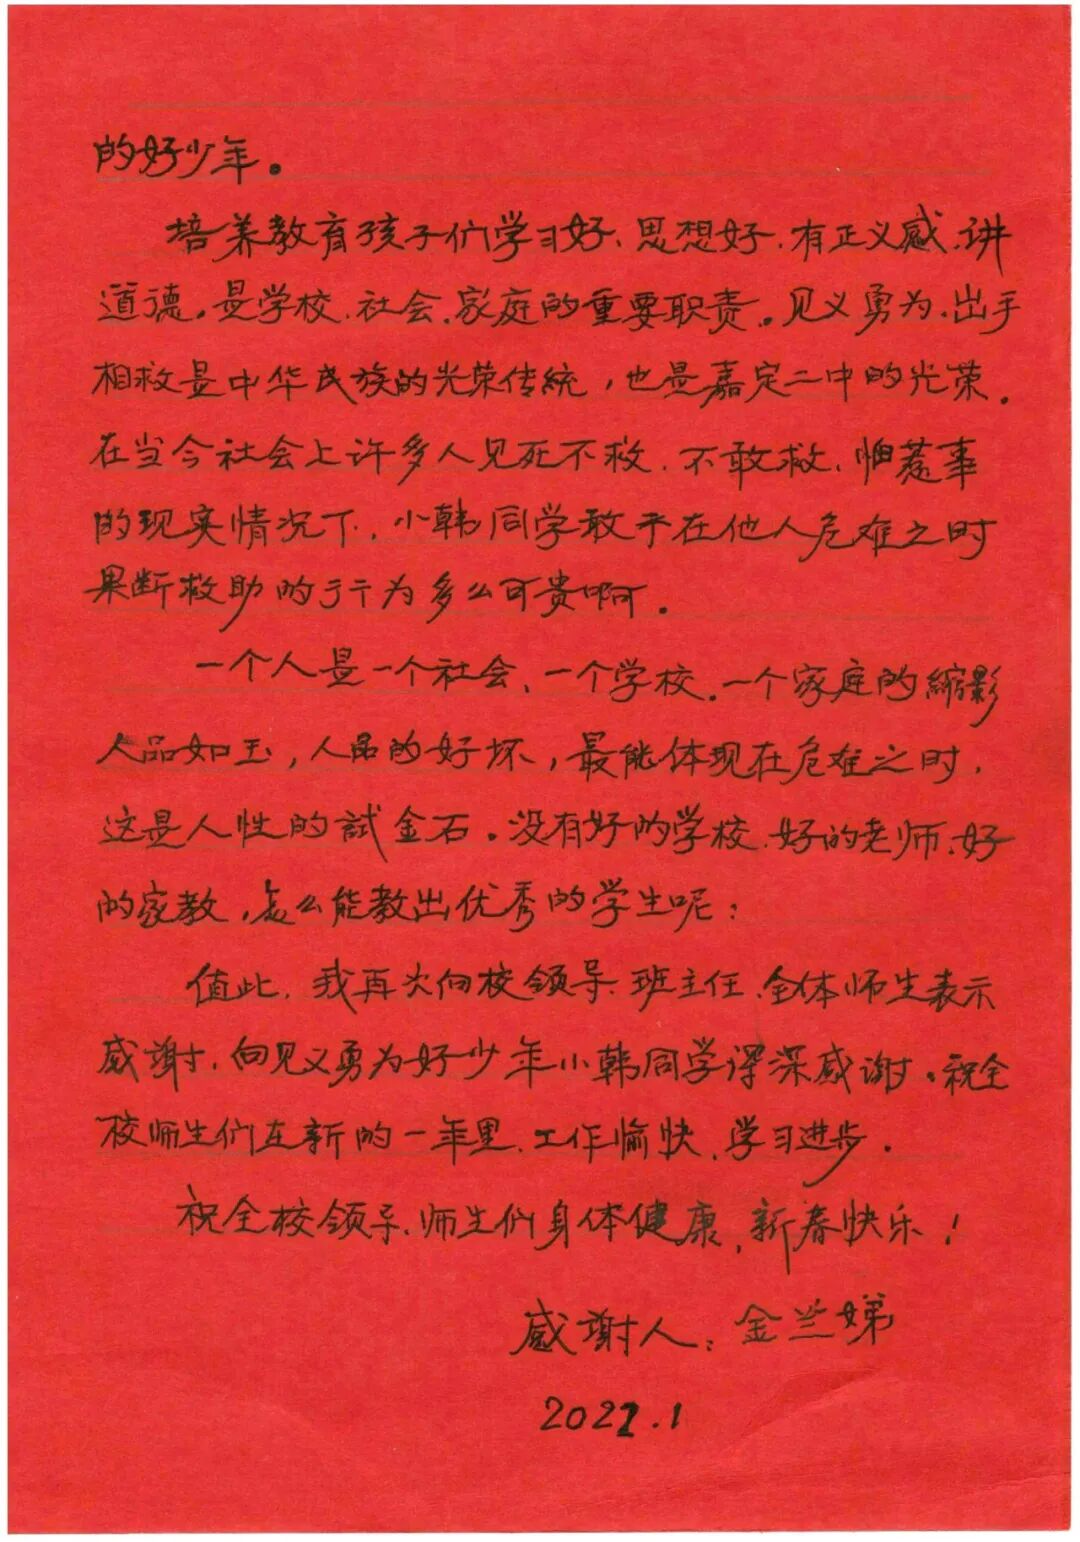 的好少年。
培养教育孩子们学习好、思想好、有正义感、讲
道德。是学校、社会、家庭的重要职责。见义勇为、出手
相救是中华民族的光荣传统，也是嘉定二中的光荣。
在当今社会上许多人见死不救、不敢救、怕惹事
的现实情况下、小韩同学敢于在他人危难之时
果断救助的行为多么可贵啊。
一个人是一个社会、一个学校、一个家庭的縮影
人品如玉，人品的好坏，最能体现在危难之时，
这是人性的試金石。没有好的学校、好的老师、好
的家教，怎么能教出优秀的学生呢：
值此、我再次向校领导、班主任、全体师生表示
感谢、向见义勇为好少年小韩同学深深感谢。祝全
校师生们在新的一年里、工作愉快、学习进步。
祝全校领导、师生们身体健康，新春快乐！
感谢人：金兰娣
2022.1